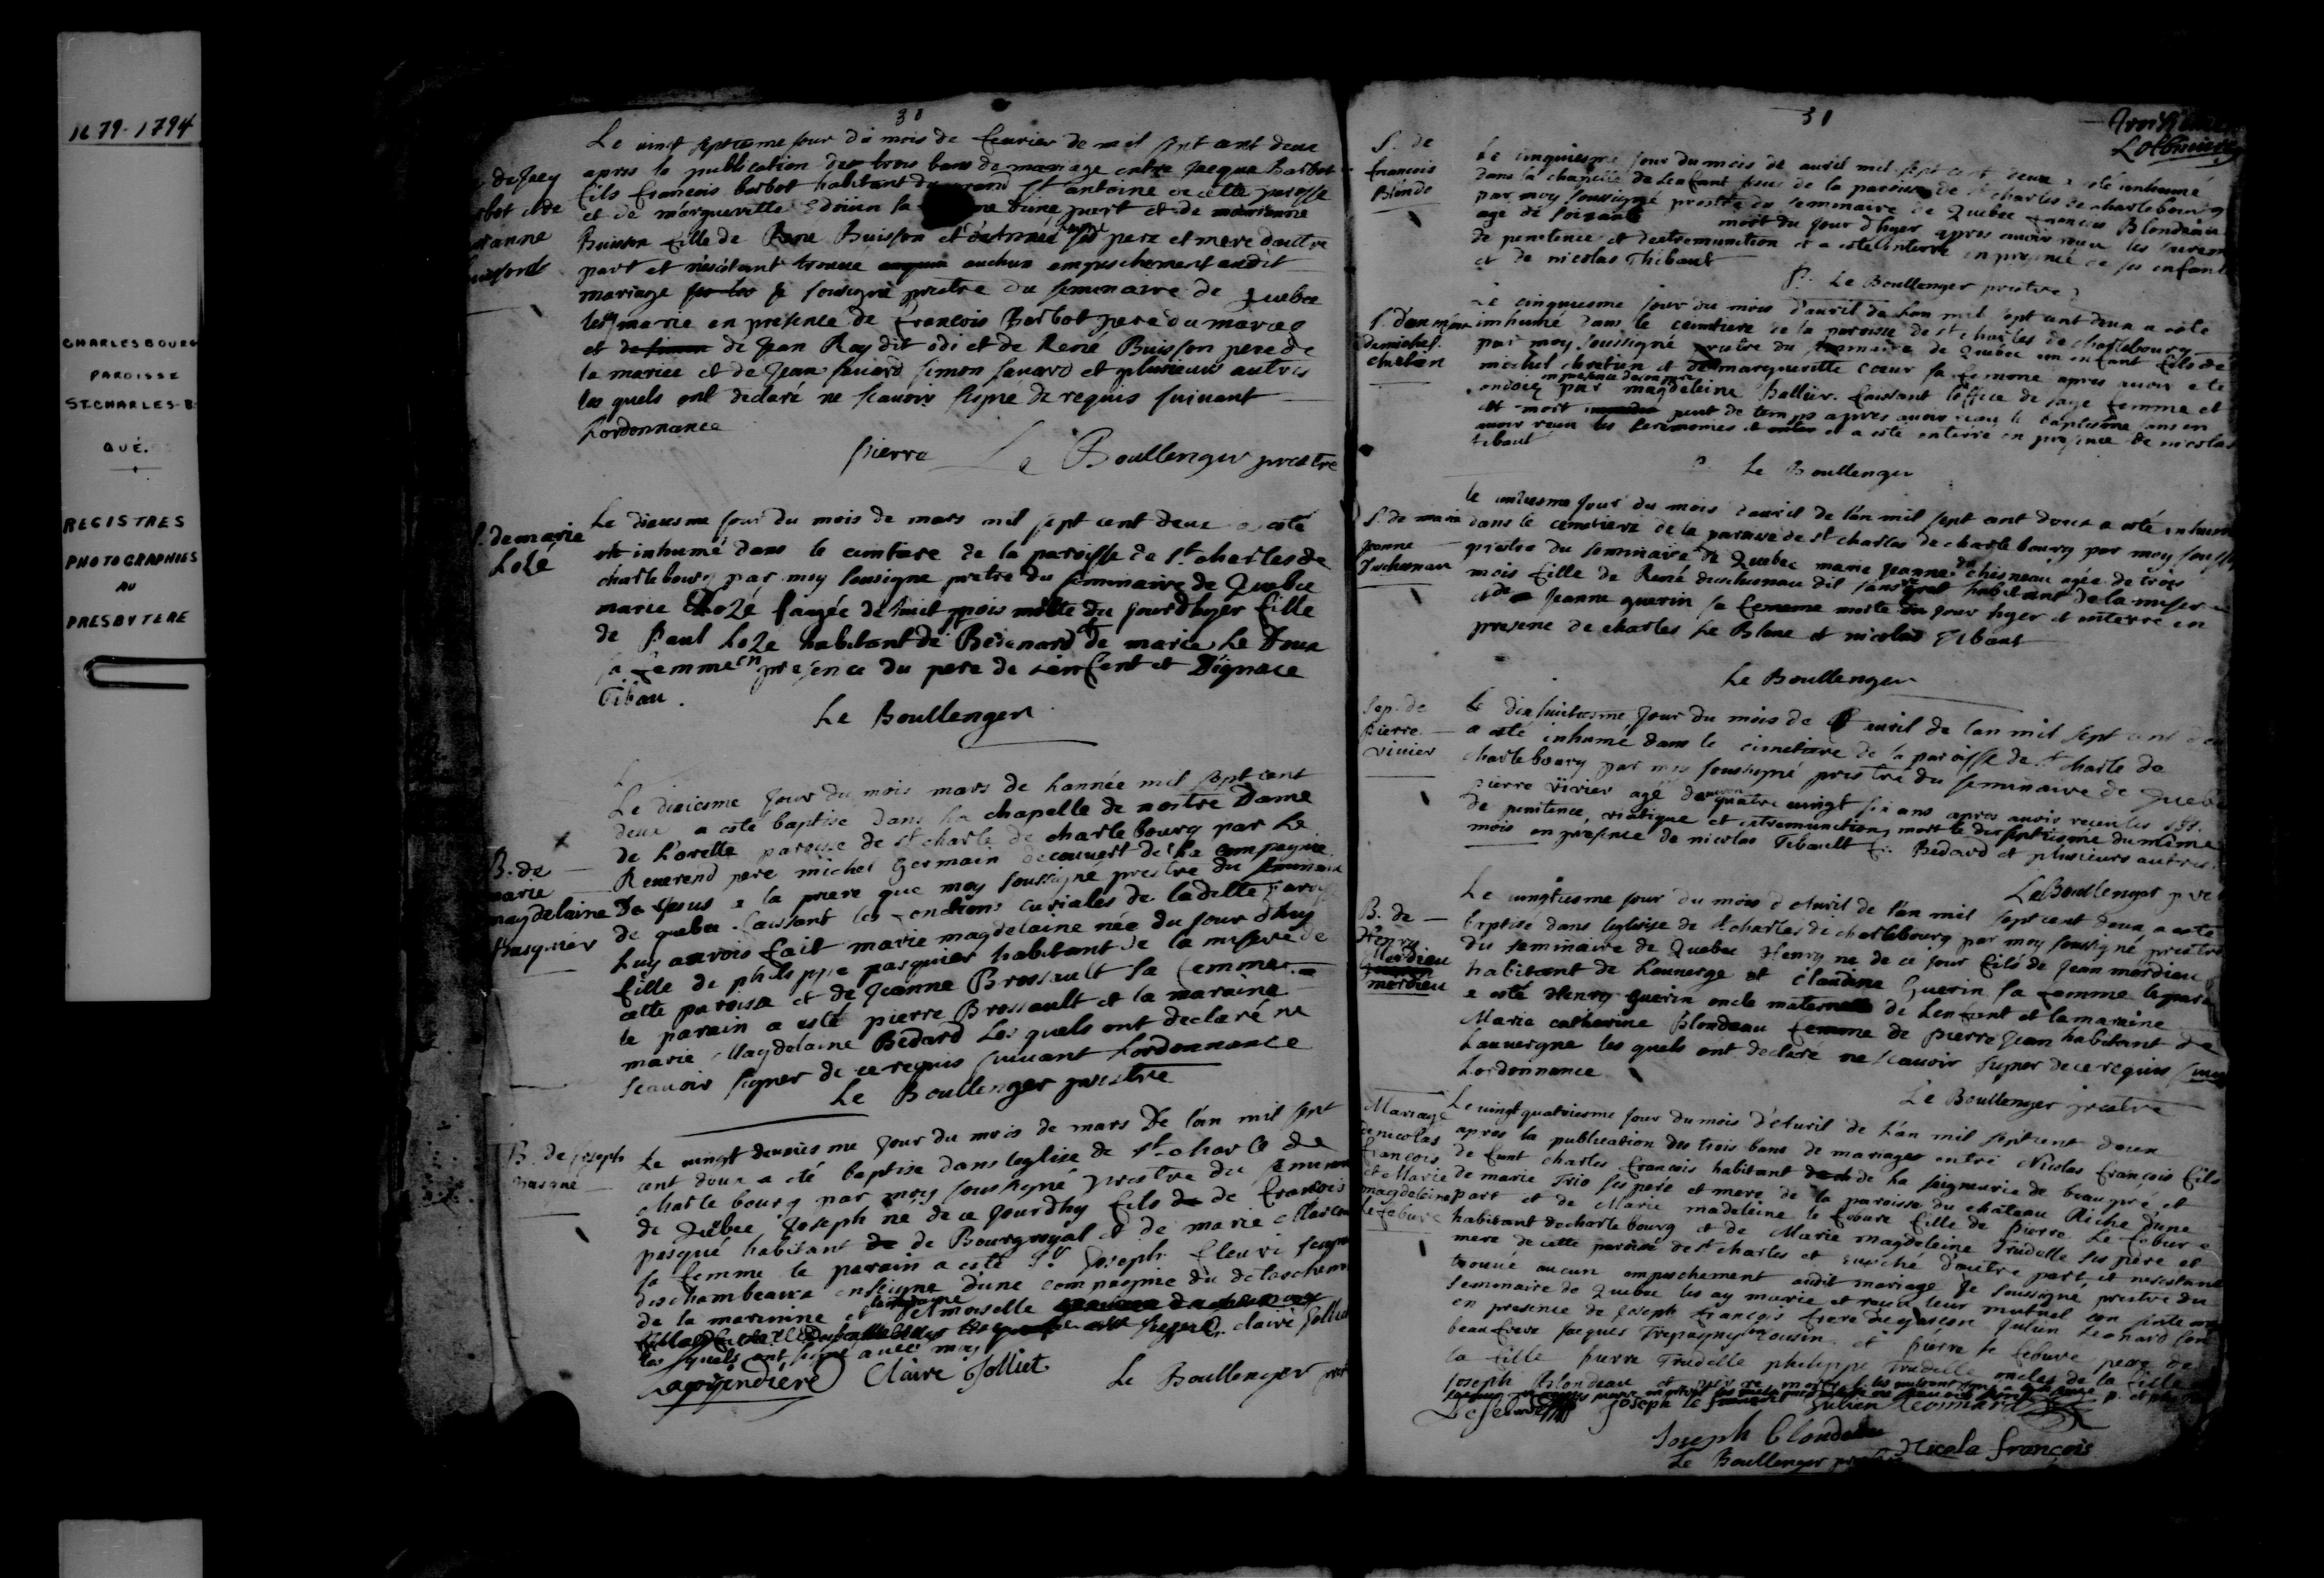 1679-1794
CHARLESBOURG
PAROISSE
ST-CHARLES-B
QUÉ.
REGISTRES
PHOTOGRAPHIÉS
AU
PRESBYTERE
30
Le vingt septieme jour du mois de fevrier de mil sept cent deux
apres la publication des trois bans de mariage entre Jacque Barbot
fils francois barbot habitant du St antoine de cette paroisse
et de marguerite Edouin sa d'une part et de marianne
Buisson fille de Rene Buisson et ses pere et mere d'autre
part et n'estant trouvé aucun empeschement audit
mariage je sousigné prestre du seminaire de Quebec
les marie en présence de francois Barbot pere du marié
et de Jean Roy dit odi et de René Buisson pere de
la mariee et de Jean Senard simon Senard et plusieurs autres
les quels ont declaré ne scavoir signé de requis suivant
Lordonnance
pierre Le Boullenger prestre
S. de marie
Lozé
Le dixiesme jour du mois de mars mil sept cent deux a esté
inhumé dans le cimitiere de la paroisse de St charles de
charlebourg par moy sousigne pretre du seminaire de Quebec
marie Lozé aagée de huit mois morte du jourdhyer fille
de Paul Loze habitant de Bedenard et de marie Le Doux
sa femme en presence du pere de lenfent et D'ignace
Tibau.
Le Boullenger
B. de
marie
magdelaine
Pasquier
Le dixiesme jour du mois mars de Lannée mil sept cent
deux a esté baptisé dans la chapelle de nostre Dame
de Lorette paroisse de St charle de charlebourg par Le
Reverend pere michel Germain de couvert de la compagnie
De Jesus a la priere que moy soussigné prestre du seminaire
de quebec faissant les fonctions curiales de ladite paroisse
Luy aurois fait marie magdelaine née du jour d'huy
fille de philippe pasquier habitant de la misere de
cette paroisse et de Jeanne Brossault sa femme
le parain a esté pierre Brossault et la maraine
marie Magdelaine Bedard Les quels ont declaré ne
scavoir signer de ce requis suivant Lordonnance
Le Boullenger prestre
B. de Joseph
pasqué
Le vingt deuxiesme jour du mois de mars De l'an mil sept
cent deux a eté baptise dans leglise de St charle de
charlebourg par moy soussigné prestre du seminaire
de Québec Joseph né de ce jourdhy fils de francois
pasqué habitant de Bourgroyal et de marie Marcou
sa femme le parain a esté Sr Joseph fleuri
deschambeaux enseigne d'une compagnie du detachement
de la marinne et la maraine demoiselle
claire Jolliet
les quels ont signé avec moy
Lagorgendiere Claire Jolliet
Le Boullenger
31
S. de
francois
Blonde
Le cinquiesme jour du mois de avril mil sept cent deux a esté inhumé
dans la chapelle de Lenfant Jesus de la paroisse de St charles de charlebourg
par moy soussigné prestre du seminaire de Quebec francois Blondeau
age de soixante mort du jour d'hyer apres avoir receu les sacrem
de penitence et dextremunction et a esté enterré en presence de ses enfants
et de nicolas Thibault
P. Le Boullenger prestre
S. d'un
de michel
chretien
Le cinquiesme jour du mois d'avril de Lan mil sept cent deux a esté
inhumé dans le cimitiere de la paroisse de St charles de charlebourg
par moy soussigné prestre du seminaire de Quebec un enfant fils de
michel chretien et de marguerite coeur sa femme apres avoir ete
ondoié par magdeleine Ballier faissant l'office de sage femme et
mort peut de temps apres avoir receu le baptesme sans en
avoir receu les ceremonies et a esté enterré en presence de nicolas
tibaut
P. Le Boullenger
S. de marie
Jeanne
Duchesneau
le unziesme jour du mois d'avril de l'an mil sept cent deux a esté inhumé
dans le cimitiere de la paroisse de St charles de charlebourg par moy
prestre du seminaire de Quebec marie Jeanne du chesneau agée de trois
mois fille de René duchesneau dit sansregret habitant de la misere
et de Jeanne guerin sa femme morte du jour hyer et enterré en
presence de charles Le Blanc et nicolas Tibaut
Le Boullenger
Sep. de
pierre
vivier
Le dix huitiesme jour du mois de avril de lan mil sept cent deux
a esté inhumé dans le cimitiere de la paroisse de St charle de
charlebourg par moy soussigné prestre du seminaire de Quebec
pierre vivier agé d'environ quatre vingt six ans apres avoir receu les
de penitence, viatique et extremunction, mort le dix septiesme du même
mois en presence de nicolas Tibault Bedard et plusieurs autres.
Le Boullenger
B. de
Henry
Mordieu
mordieu
Le vingtiesme jour du mois d'Avril de l'an mil sept cent deux a esté
baptisé dans leglisse de St charles de charlebourg par moy soussigné prestre
du seminaire de Quebec Henry né de ce jour fils de Jean mordieu
habitant de L'auverge et claudine Guerin sa femme le parain
a esté Henry Guerin oncle maternelle de Lenfant et la maraine
Marie catherine Blondeau femme de pierre Jean habitant de
Lauvergne les quels ont declaré ne scavoir signer de ce requis
Lordonnance
Le Boullenger prestre
Mariage
de nicolas
francois
et Marie
magdeleine
le febure
Le vingt quatriesme jour du mois d'Avril de L'an mil sept cent deux
apres la publication des trois bans de mariages entre Nicolas francois fils
de funt charles francois habitant de La seigneurie de beaupré et
de marie Trio ses pere et mere de la paroisse du chateau Riche d'une
part et de Marie madeleine le febure fille de pierre Le febure
habitant de charlebourg et de Marie magdeleine Trudelle ses pere et
mere de cette paroisse de St charles et evesché d'autre part et n'estant
trouvé aucun empeschement audit mariage Je soussigné prestre du
seminaire de Quebec les ay marie et receu leur mutuel
en presence de Joseph francois frere du garcon Julien Leonard son
beau frere Jacques Trepagny son cousin et pierre le febure pere de
la fille pierre Trudelle philippe Trudelle oncles de la fille
Joseph Blondeau
Lefebure Joseph le francois Julien Leonnard
Joseph blondeau
Nicola françois
Le Boullenger